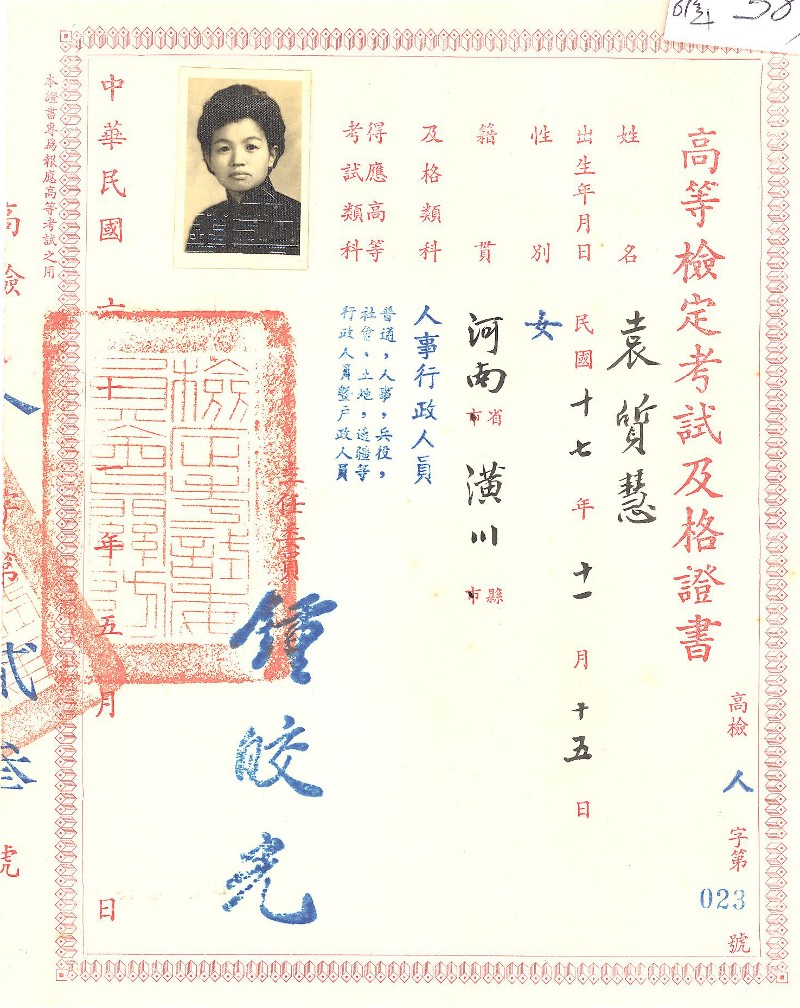 高等檢定考試及格證書
高檢人字第023號
姓名 袁質慧
出生年月日 民國十七年十一月十五日
性別 女
籍貫 河南省市 潢川縣市
及格類科 人事行政人員
得應高等考試類科
普通,人事,兵役,
社會,土地,邊疆等
行政人員暨戶政人員
主任委員 鍾皎光
檢定考試委員會
中華民國六十一年五月 日
本證書專為報應高等考試之用
高檢人字第
貳叁號